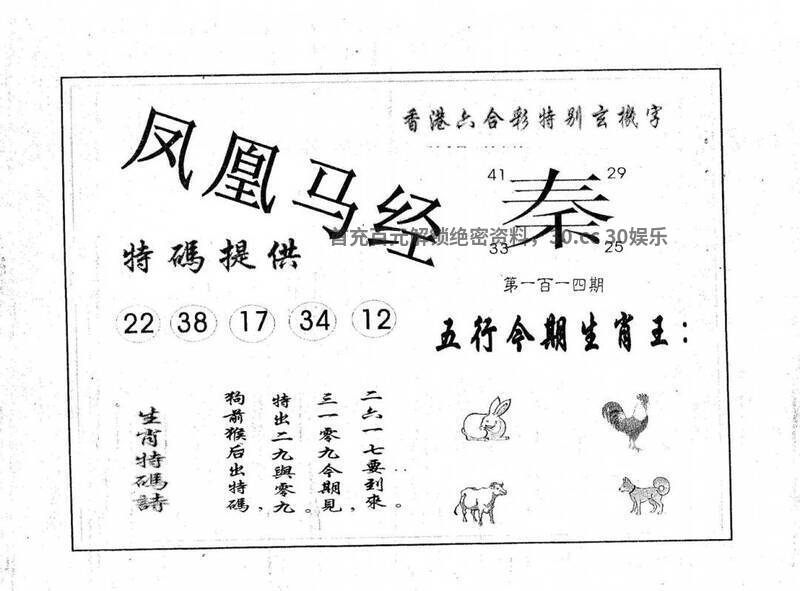 凤凰马经
香港六合彩特别玄機字
41 29
秦
33 25
首充百元解锁绝密资料，30.cc 30娱乐
特碼提供
第一百一四期
22 38 17 34 12
五行今期生肖王：
生肖特碼詩
二六一七要到來。
三一零九今期見，
特出二九與零九。
狗前猴后出特碼，